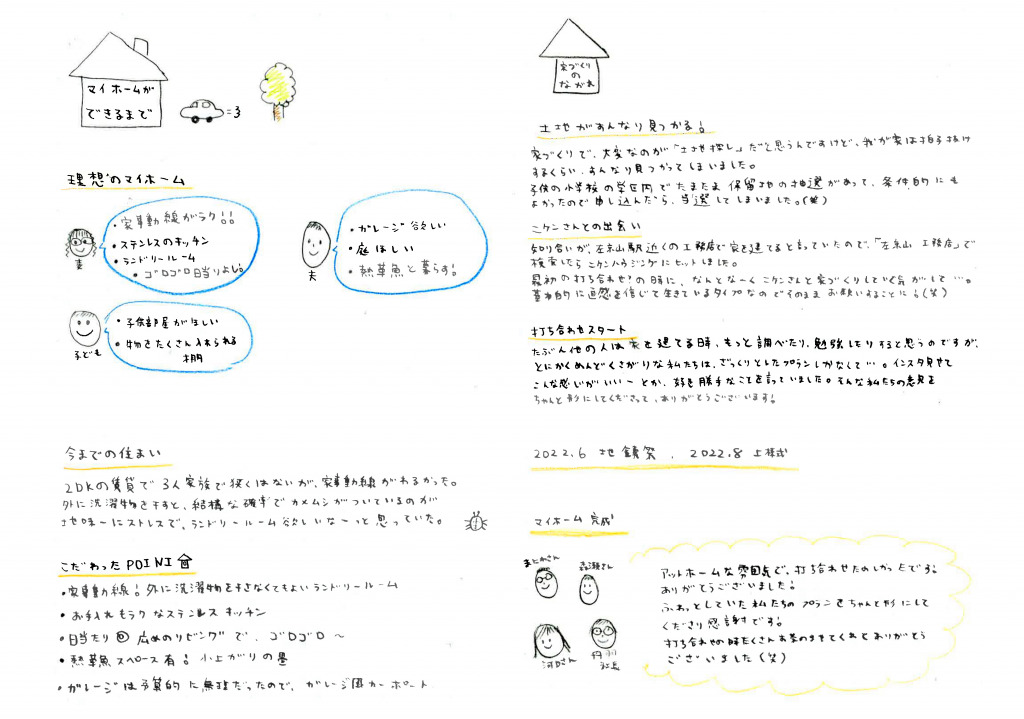 マイホームが
できるまで
理想のマイホーム
・家事動線がラク!!
・ステンレスのキッチン
・ランドリールーム
・ゴロゴロ日当りよし。
妻
・ガレージ欲しい
・庭ほしい
・熱帯魚と暮らす!
夫
・子供部屋がほしい
・物をたくさん入れられる
棚
子ども
今までの住まい
2DKの賃貸で3人家族で狭くはないが、家事動線がわるかった。
外に洗濯物を干すと、結構な確率でカメムシがついているのが
地味ーにストレスで、ランドリールーム欲しいなーっと思っていた。
こだわったPOINT
・家事動線!外に洗濯物をほさなくてもよいランドリールーム
・お手入れもラクなステンレスキッチン
・日当たり◎広めのリビングで、ゴロゴロ〜
・熱帯魚スペース有!小上がりの畳
・ガレージは予算的に無理だったので、ガレージ風カーポート
家づくり
の
ながれ
土地がすんなり見つかる!
家づくりで、大変なのが「土地探し」だと思うんですけど、我が家は拍子抜け
するくらい、すんなり見つかってしまいました。
子供の小学校の学区内でたまたま保留地の抽選があって、条件的にも
よかったので申し込んだら、当選してしまいました。(笑)
ニケンさんとの出会い
知り合いが、左京山駅近くの工務店で家を建てると言っていたので、「左京山 工務店」で
検索したらニケンハウジングにヒットしました。
最初の打ち合わせの時に、なんとなーくニケンさんと家づくりしていく気がして…。
基本的に直感を信じて生きているタイプなのでそのままお願いすることに!(笑)
打ち合わせスタート
たぶん他の人は家を建てる時、もっと調べたり、勉強したりすると思うのですが、
とにかくめんどくさがりな私たちは、ざっくりとしたプランしかなくて…。インスタ見せて
こんな感じがいいーとか、好き勝手なことを言っていました。そんな私たちの意見を
ちゃんと形にしてくださって、ありがとうございます!
2022.6 地鎮祭、2022.8 上棟式
マイホーム完成
森瀬さん
河口さん
丹羽
社長
アットホームな雰囲気で、打ち合わせたのしかったです。
ありがとうございました!
ふわっとしていた私たちのプランをちゃんと形にして
くださり感謝です。
打ち合わせの時たくさんお茶のませてくれてありがとう
ございました(笑)